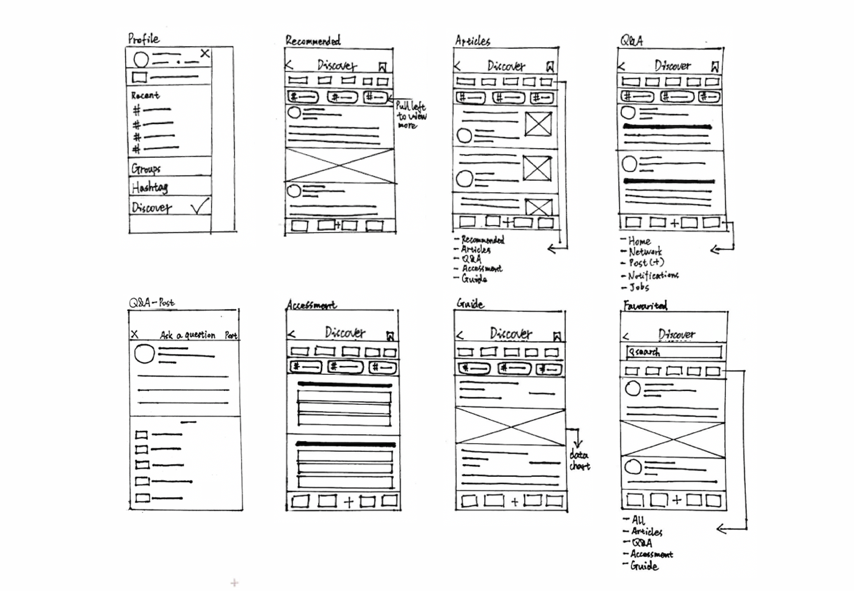 Profile
×
Recent
#
#
#
#
Groups
Hashtag
Discover ✓
Recommended
< Discover
# # #
Pull left
to view
more
+
Articles
< Discover
# # #
+
- Recommended
- Articles
- Q&A
- Accessment
- Guide
Q&A
< Discover
# # #
+
- Home
- Network
- Post (+)
- Notifications
- Jobs
Q&A-Post
× Ask a question Post
Accessment
< Discover
# # #
+
Guide
< Discover
# # #
data
chart
+
Favourited
< Discover
search
+
- All
- Articles
- Q&A
- Accessment
- Guide